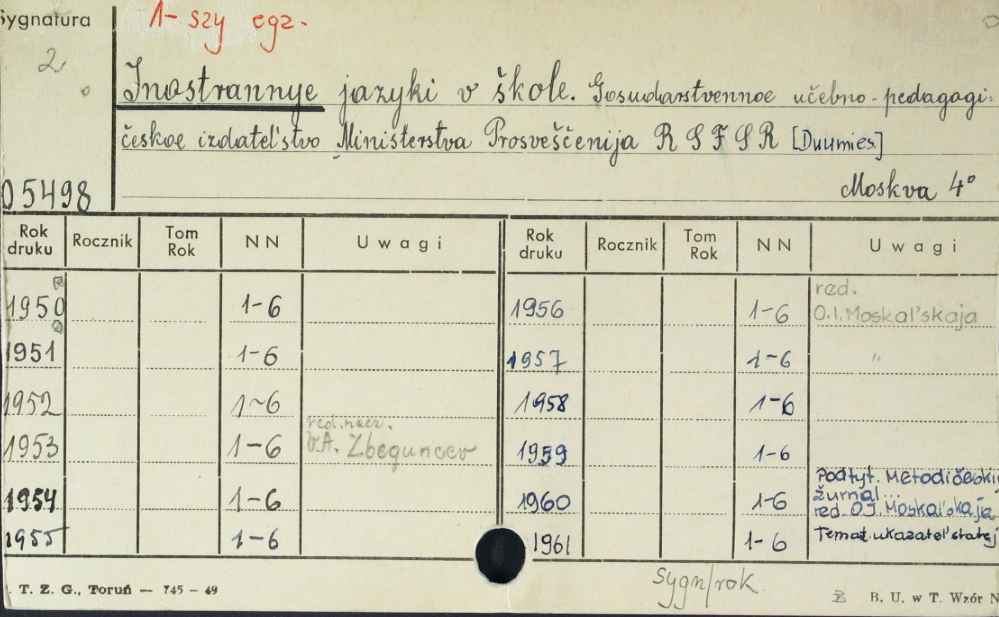 Sygnatura
1-szy egz.
2
Inostrannye jazyki v škole. Gosudarstvennoe učebno-pedagogi-
českoe izdatel'stvo Ministerstva Prosveščenija R S F S R [Dwumies.]
05498
Moskva 4°
Rok druku Rocznik Tom Rok N N Uwagi Rok druku Rocznik Tom Rok N N Uwagi
1950 1-6 1956 1-6 red. O.I. Moskal'skaja
1951 1-6 1957 1-6 "
1952 1-6 1958 1-6
1953 1-6 red. nacz. V.A. Zbeguncev 1959 1-6
1954 1-6 1960 1-6 Podtyt. Metodičeskij žurnal... red. O.I. Moskal'skaja
1955 1-6 1961 1-6 Temat. ukazatel' statej
sygn/rok
T. Z. G., Toruń — 745 - 49
B. U. w T. Wzór N